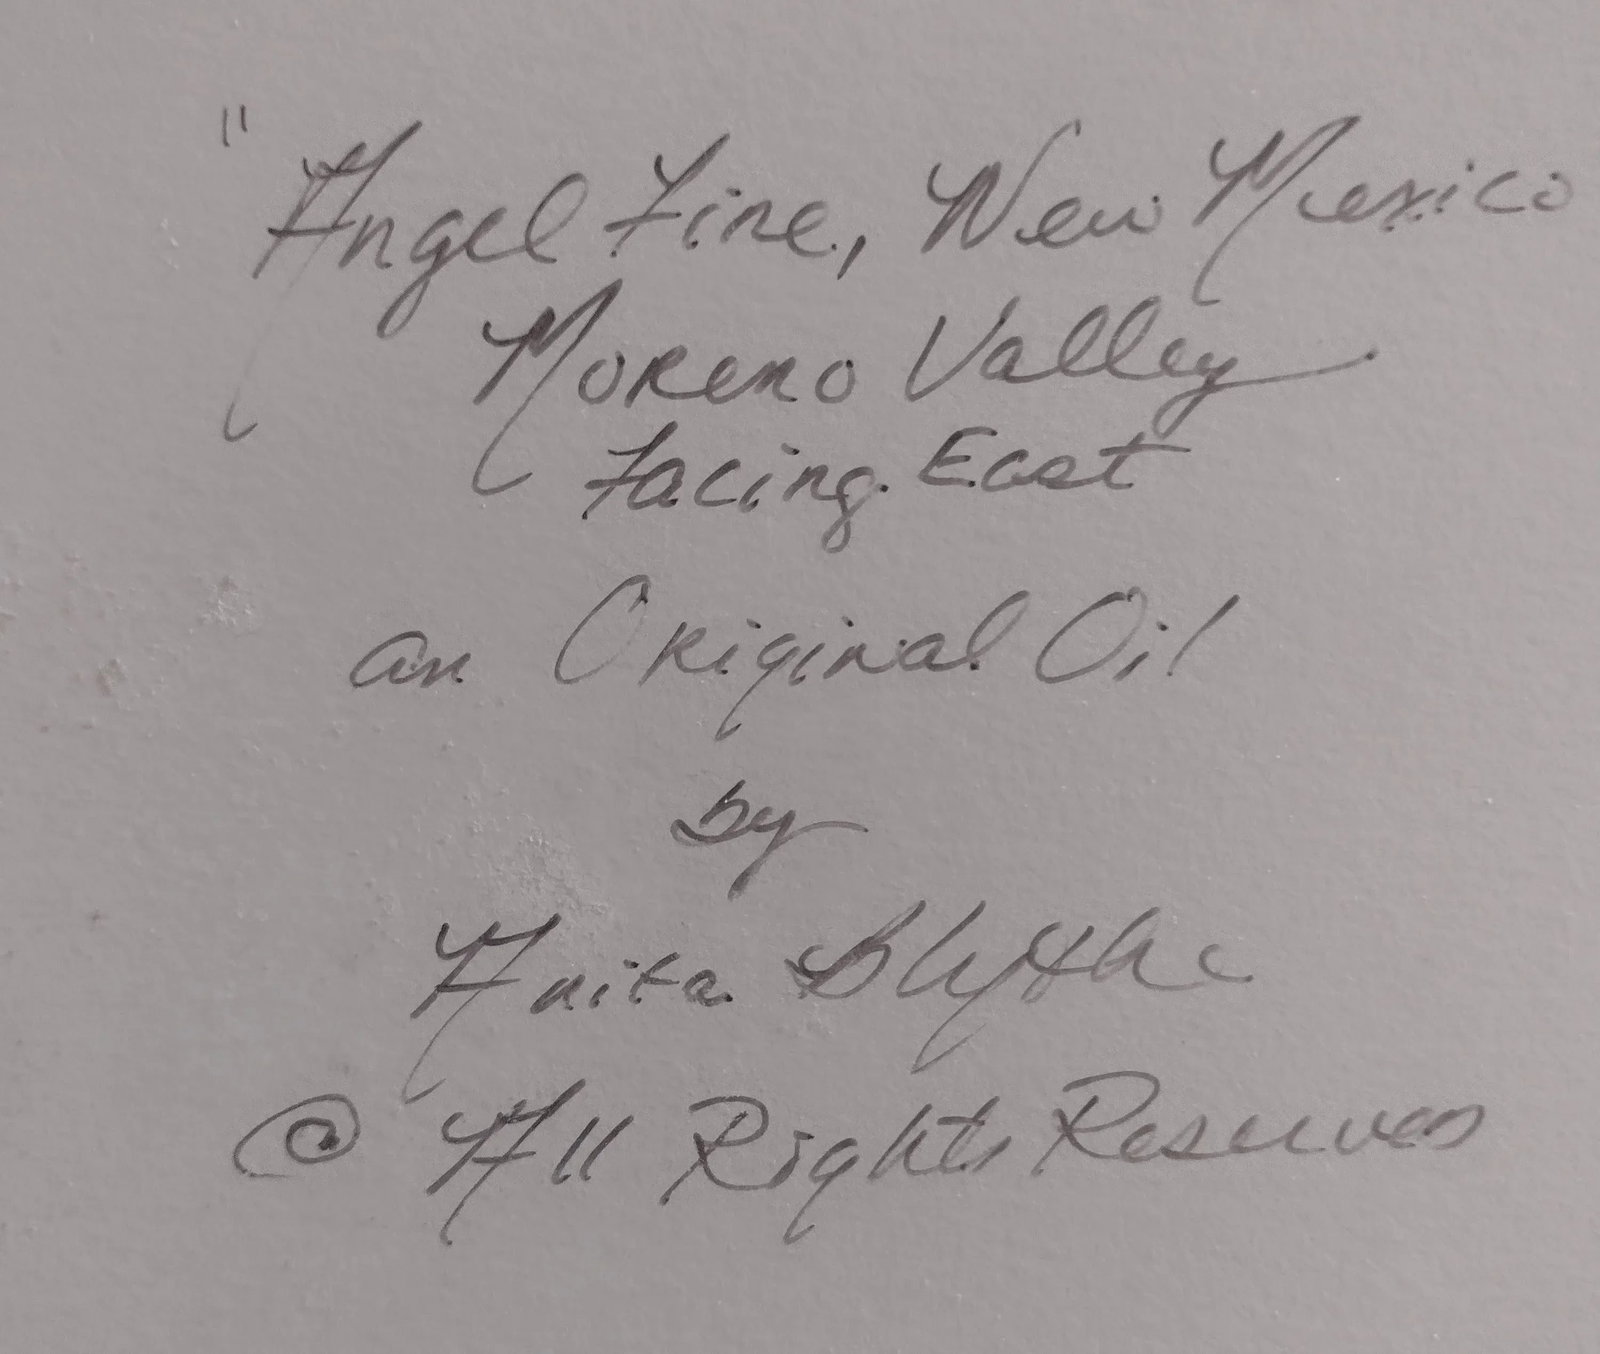 "Angel Fire, New Mexico
Moreno Valley
Facing East
an Original Oil
by
Anita Blythe
© All Rights Reserves